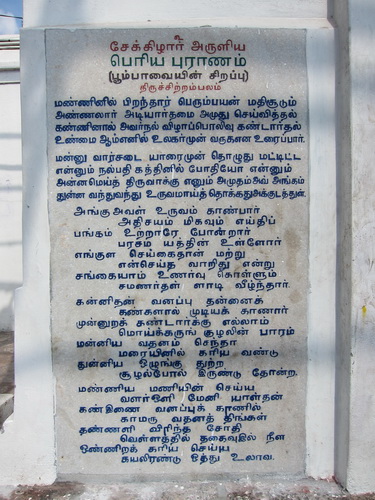 சேக்கிழார் அருளிய
பெரிய புராணம்
(பூம்பாவையின் சிறப்பு)
திருச்சிற்றம்பலம்
மண்ணினில் பிறந்தார் பெறும்பயன் மதிசூடும்
அண்ணலார் அடியார்தமை அமுது செய்வித்தல்
கண்ணினால் அவர்நல் விழாப்பொலிவு கண்டார்தல்
உண்மை ஆம்எனில் உலகர்முன் வருகென உரைப்பார்.
மன்னு வார்சடை யாரைமுன் தொழுது மட்டிட்ட
என்னும் நல்பதி கத்தினில் போதியோ என்னும்
அன்னமெய்த் திருவாக்கு எனும் அமுதம்அவ் அங்கம்
துன்ன வந்துவந்து உருவமாய்த் தொக்கதுஅக்குடத்துள்.
அங்கு அவள் உருவம் காண்பார்
அதிசயம் மிகவும் எய்திப்
பங்கம் உற்றாரே போன்றார்
பரசம யத்தின் உள்ளோர்
எங்குள செய்கைதான் மற்று
என்செய்த வாறிது என்று
சங்கையாம் உணர்வு கொள்ளும்
சமணர்தள் ளாடி வீழ்ந்தார்.
கன்னிதன் வனப்பு தன்னைக்
கண்களால் முடியக் காணார்
முன்னுறக் கண்டார்க்கு எல்லாம்
மொய்க்கருங் குழலின் பாரம்
மன்னிய வதனம் செந்தா
மரையினில் கரிய வண்டு
துன்னிய ஒழுங்கு துற்ற
சூழல்போல் இருண்டு தோன்ற.
மண்ணிய மணியின் செய்ய
வளர்ஒளி மேனி யாள்தன்
கண்இணை வனப்புக் காணில்
காமரு வதனத் திங்கள்
தண்ணளி விரிந்த சோதி
வெள்ளத்தில் தகைவுஇல் நீள
ஒண்ணிறக் கரிய செய்ய
கயலிரண்டு ஒத்து உலாவ.